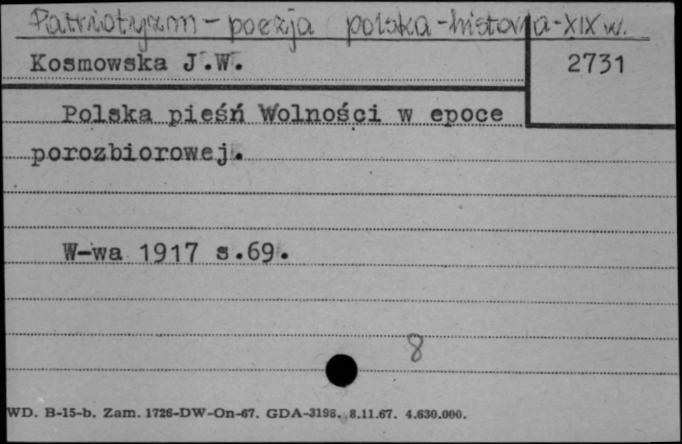 Patriotyzm - poezja polska - historia - XIX w.
Kosmowska J.W.
2731
Polska pieśń Wolności w epoce
porozbiorowej.
W-wa 1917 s.69.
8
WD. B-15-b. Zam. 1726-DW-On-67. GDA-3198. 8.11.67. 4.630.000.